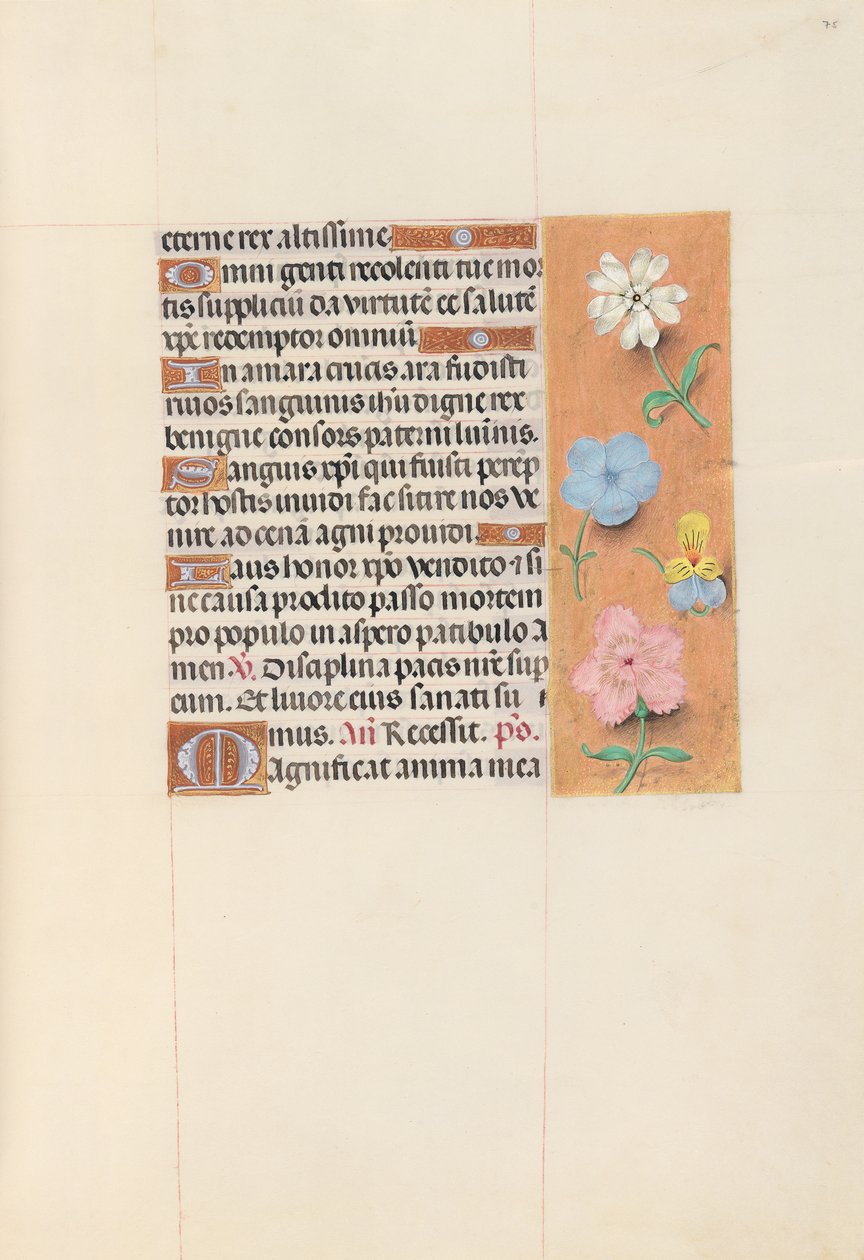 75
eterne rex altissime
Omni genti recolenti tue mor
tis suppliciū da virtutē ec salutē
xp̄e redemptor omniū
In amara crucis ara fudisti
rivos sanguinis ih̄u digne rex
benigne consors paterni lum̄nis.
Sanguis xp̄i qui fuisti perēp
tor hostis mundi fac sitire nos ve
nire ad cenā agni providi
Laus honor xp̄o vendito ⁊ si
ne causa prodito passo mortem
pro populo in aspero patibulo A
men. V̄. Disciplina pacis nr̄e sup
eum. Et livore eius sanati su
mus. An̄ Recessit. pō.
Magnificat anima mea